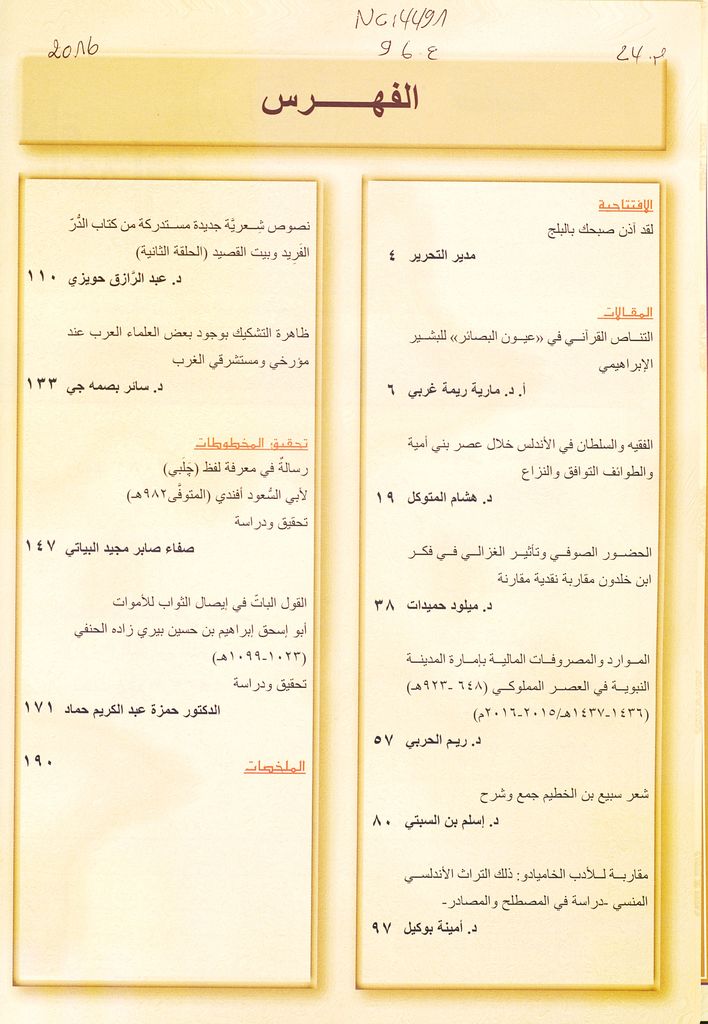 NC14491
2016
96.ع
24.م
الفهــــرس
الافتتاحية
لقد آذن صبحك بالبلج
مدير التحرير ٤
المقالات
التناص القرآني في «عيون البصائر» للبشير
الإبراهيمي
أ. د. مارية ريمة غربي ٦
الفقيه والسلطان في الأندلس خلال عصر بني أمية
والطوائف التوافق والنزاع
د. هشام المتوكل ١٩
الحضور الصوفي وتأثير الغزالي في فكر
ابن خلدون مقاربة نقدية مقارنة
د. ميلود حميدات ٣٨
الموارد والمصروفات المالية بإمارة المدينة
النبوية في العصر المملوكي (٦٤٨ -٩٢٣هـ)
(١٤٣٦-١٤٣٧هـ/٢٠١٥-٢٠١٦م)
د. ريم الحربي ٥٧
شعر سبيع بن الخطيم جمع وشرح
د. إسلم بن السبتي ٨٠
مقاربة لـلأدب الخاميادو: ذلك التراث الأندلسي
المنسي -دراسة في المصطلح والمصادر-
د. أمينة بوكيل ٩٧
نصوص شعريَّة جديدة مستدركة من كتاب الدُّرّ
الفَرِيد وبيت القصيد (الحلقة الثانية)
د. عبد الرَّازق حويزي ١١٠
ظاهرة التشكيك بوجود بعض العلماء العرب عند
مؤرخي ومستشرقي الغرب
د. سائر بصمه جي ١٣٣
تحقيق المخطوطات
رسالةٌ في معرفة لفظ (چَلَبي)
لأبي السُّعود أفندي (المتوفَّى٩٨٢هـ)
تحقيق ودراسة
صفاء صابر مجيد البياتي ١٤٧
القول الباتّ في إيصال الثواب للأموات
أبو إسحق إبراهيم بن حسين بيري زاده الحنفي
(١٠٢٣-١٠٩٩هـ)
تحقيق ودراسة
الدكتور حمزة عبد الكريم حماد ١٧١
الملخصات ١٩٠